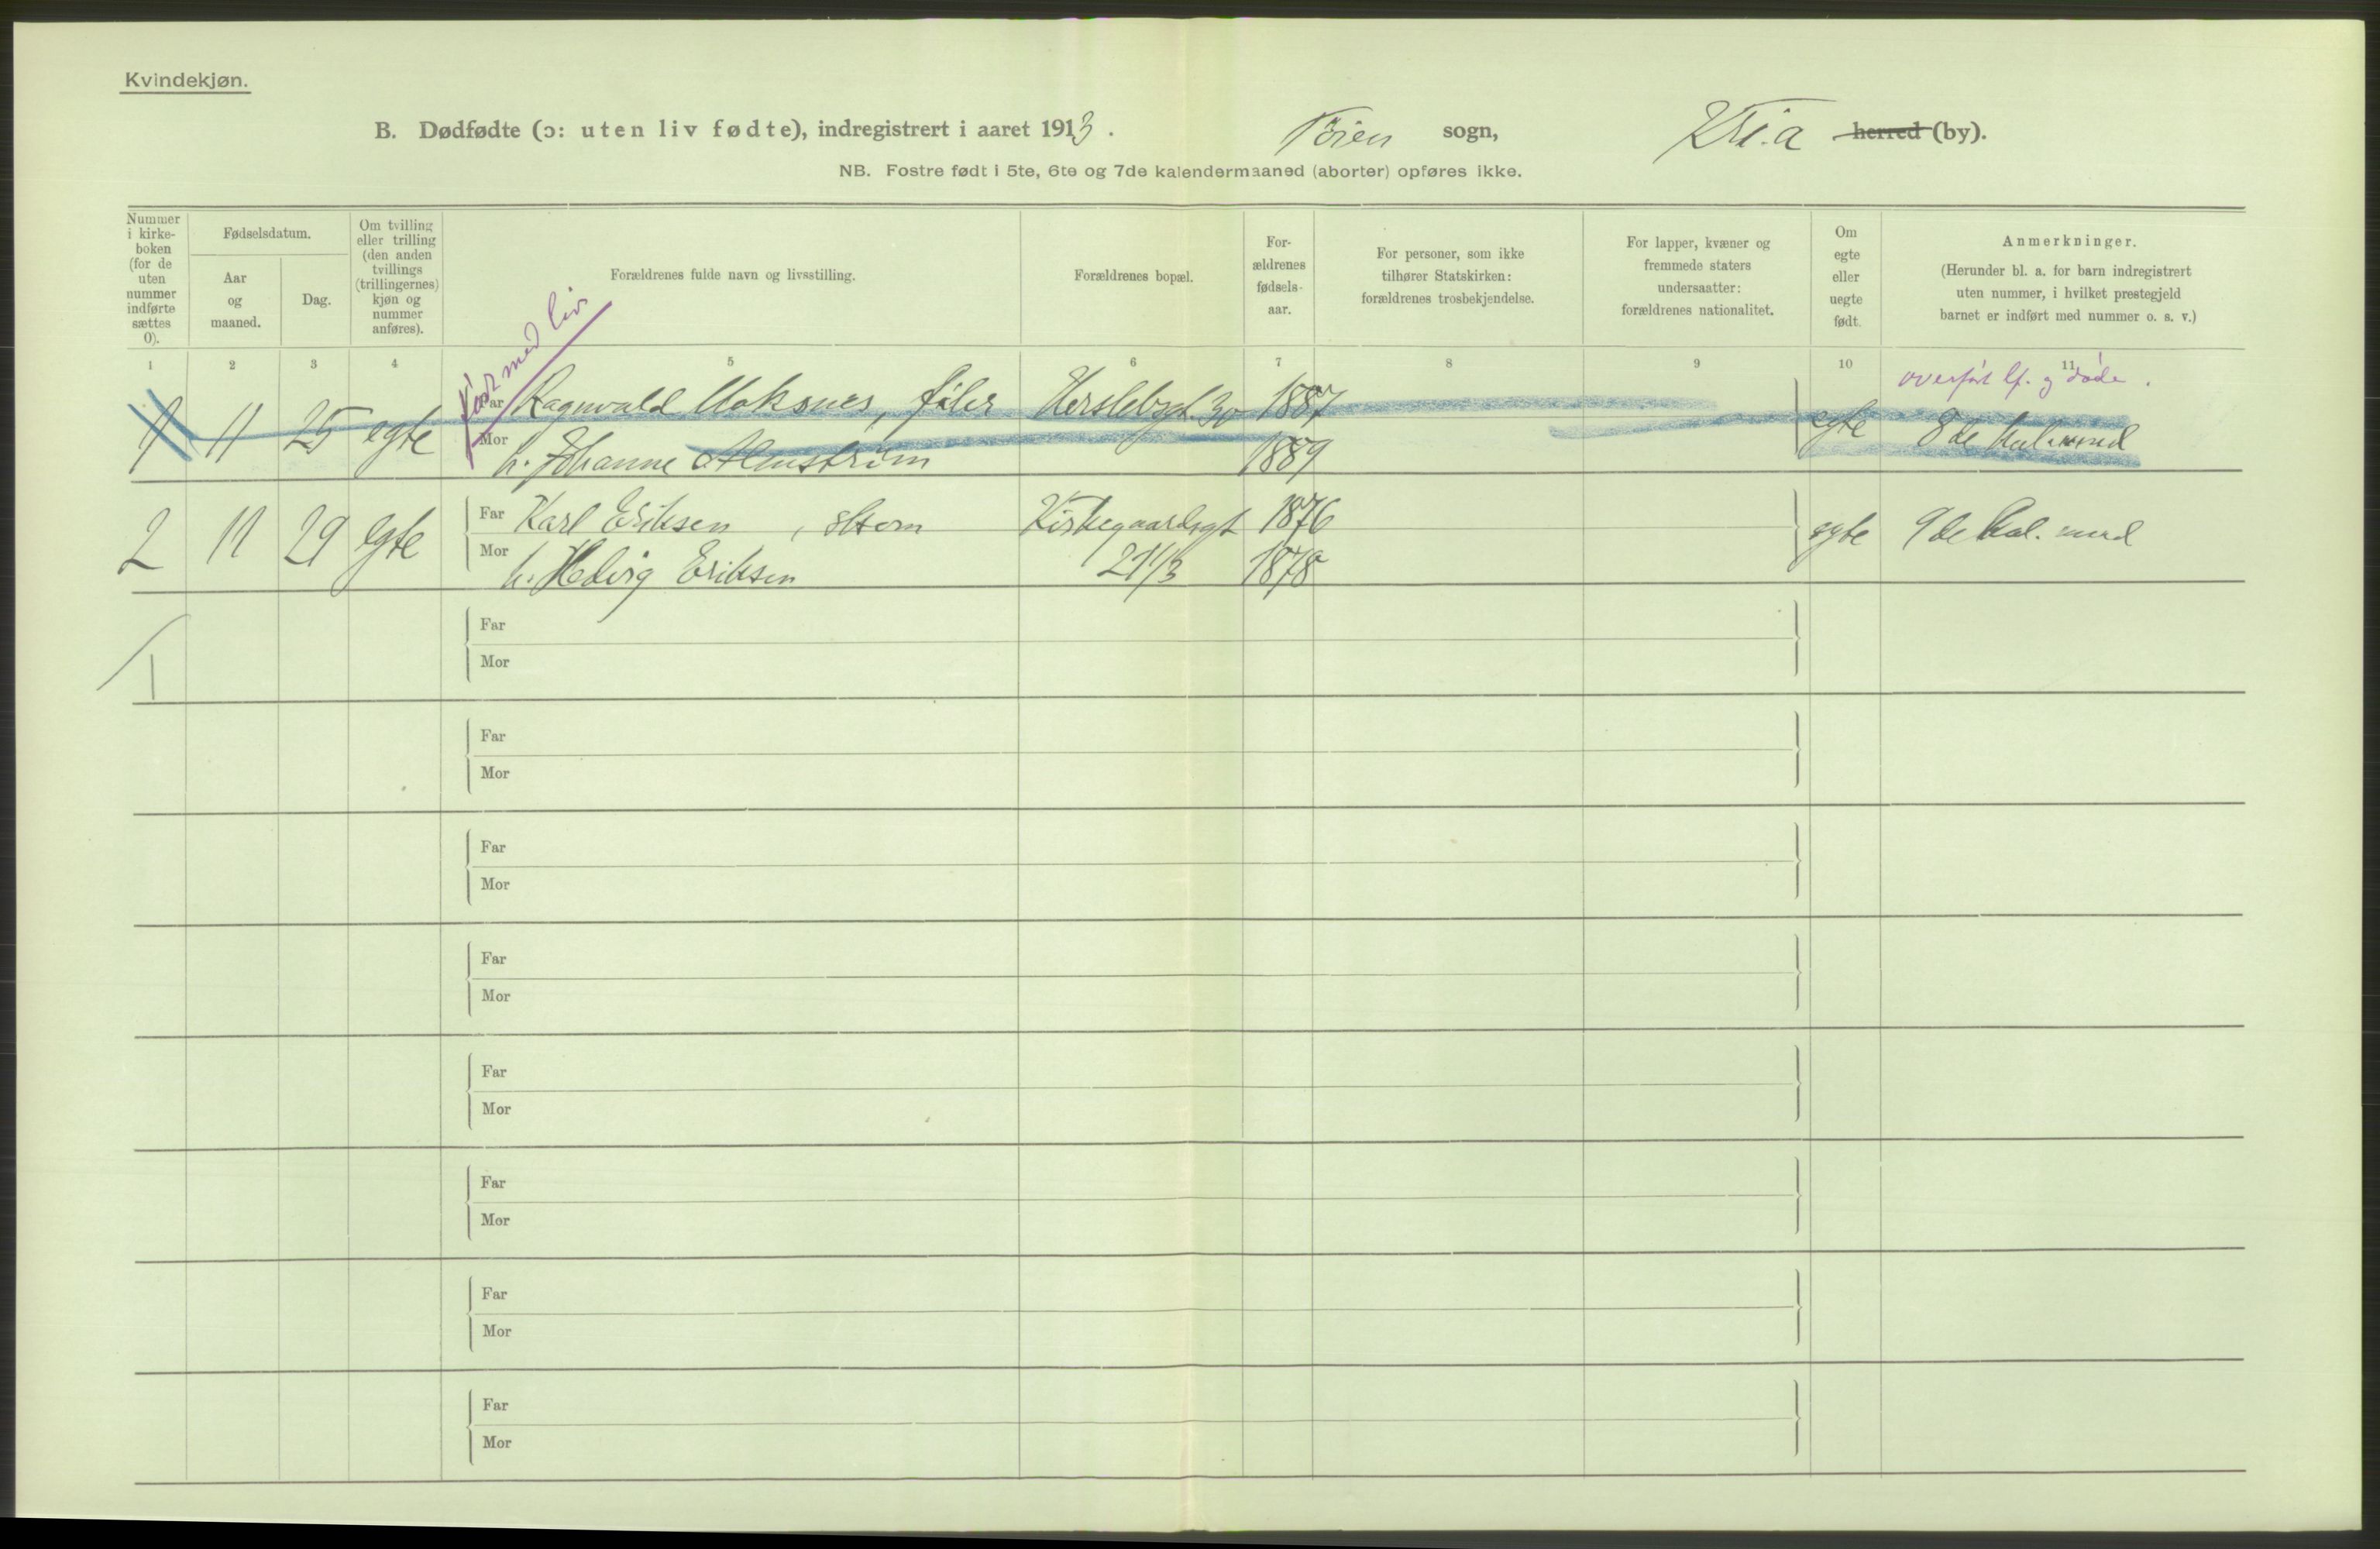 Kvindekjøn.
B. Dødfødte (ɔ: uten liv fødte), indregistrert i aaret 1913. Tøien sogn, Kr.a herred (by).
NB. Fostre født i 5te, 6te og 7de kalendermaaned (aborter) opføres ikke.
Nummer i kirke-boken (for de uten nummer indførte sættes 0).
Fødselsdatum.
Aar og maaned.
Dag.
Om tvilling eller trilling (den anden tvillings (trillingernes) kjøn og nummer anføres).
Forældrenes fulde navn og livsstilling.
Forældrenes bopæl.
For-ældrenes fødsels-aar.
For personer, som ikke tilhører Statskirken: forældrenes trosbekjendelse.
For lapper, kvæner og fremmede staters undersaatter: forældrenes nationalitet.
Om egte eller uegte født.
Anmerkninger.
(Herunder bl. a. for barn indregistrert uten nummer, i hvilket prestegjeld barnet er indført med nummer o. s. v.)
1 2 3 4 5 6 7 8 9 10 11
født med liv
overført lf. og døde.
1 11 25 egte Far Ragnvald Moksnes, filer Herslebsgt. 30 1887 egte 8de kal. mnd
Mor h. Johanne Almstrøm 1889
2 11 29 egte Far Karl Eriksen, Kirkegaardsgt 1876 egte 9de kal. mnd
Mor h. Hedvig Eriksen 21/3 1878
Far
Mor
1
Far
Mor
Far
Mor
Far
Mor
Far
Mor
Far
Mor
Far
Mor
Far
Mor